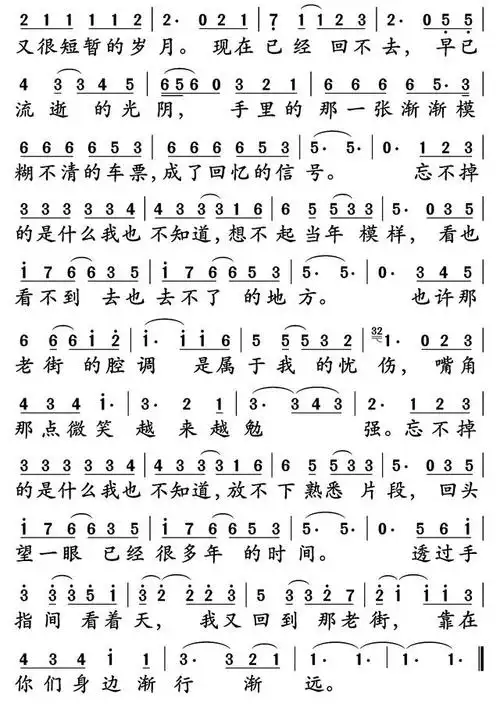 2 1 1 1 2 | 2· 0 2 1 | 7 1 1 2 3 | 2· 0 5 5 |
又很短暂的岁月。现在已经回不去,早已
4 3 3 4 5 | 6 5 6 0 3 2 1 | 6 6 6 6 5· 3 |
流逝的光阴,手里的那一张渐渐模
6 6 6 6 5 3 | 6 6 6 6 5 3 | 5· 5· | 0· 1 2 3 |
糊不清的车票,成了回忆的信号。忘不掉
3 3 3 3 3 4 | 4 3 3 3 1 6 | 6 5 5 3 3 | 5· 0 3 5 |
的是什么我也不知道,想不起当年模样,看也
i 7 6 6 3 5 | i 7 6 6 3 5 | 5· 5· | 0· 3 4 5 |
看不到去也去不了的地方。也许那
6 6 6 i 2 | i· i i 6 | 5 5 5 3 2 | 32 1· 0 2 3 |
老街的腔调是属于我的忧伤,嘴角
4 3 4 1· | 3· 2 1 | 3· 3 4 3 | 2· 1 2 3 |
那点微笑越来越勉强。忘不掉
3 3 3 3 3 4 | 4 3 3 3 1 6 | 6 5 5 3 3 | 5· 0 3 5 |
的是什么我也不知道,放不下熟悉片段,回头
i 7 6 6 3 5 | i 7 6 6 3 5 | 5· 5· | 0· 5 6 i |
望一眼已经很多年的时间。透过手
3 3 3 5 i | 2· 2 i 2 | 5 3 3 2 7 | 2 i i i 3 |
指间看着天,我又回到那老街,靠在
4 3 4 i 1 | 1· 3 2 1 | 1· 1· | 1· 1· ‖
你们身边渐行渐远。